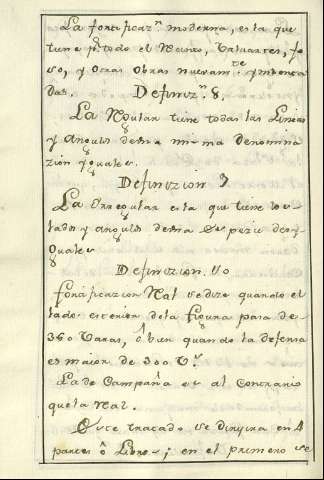 La fortificaz.n moderna, es la que
tiene p.r todo el Recinto, Valuartes, fo
so, y otras obras nuevam.te ymbenta
das. Definiz.n 8
La Regular tiene todas las Lineas
y Angulos de una misma denomina
zion yguales.
Definizion 9
La Yrregular es la que tiene los
lados y angulos de una especie desy
guales
Definizion. 10
fortificazion Real se dize quando el
lado exterior de la figura pasa de
360 Varas, ô bien quando la defensa
es maior de 300 V.s
La de Campaña es al contrario
que la Real.
Este tratado se divi en 4
partes ô Libros; en el primero se